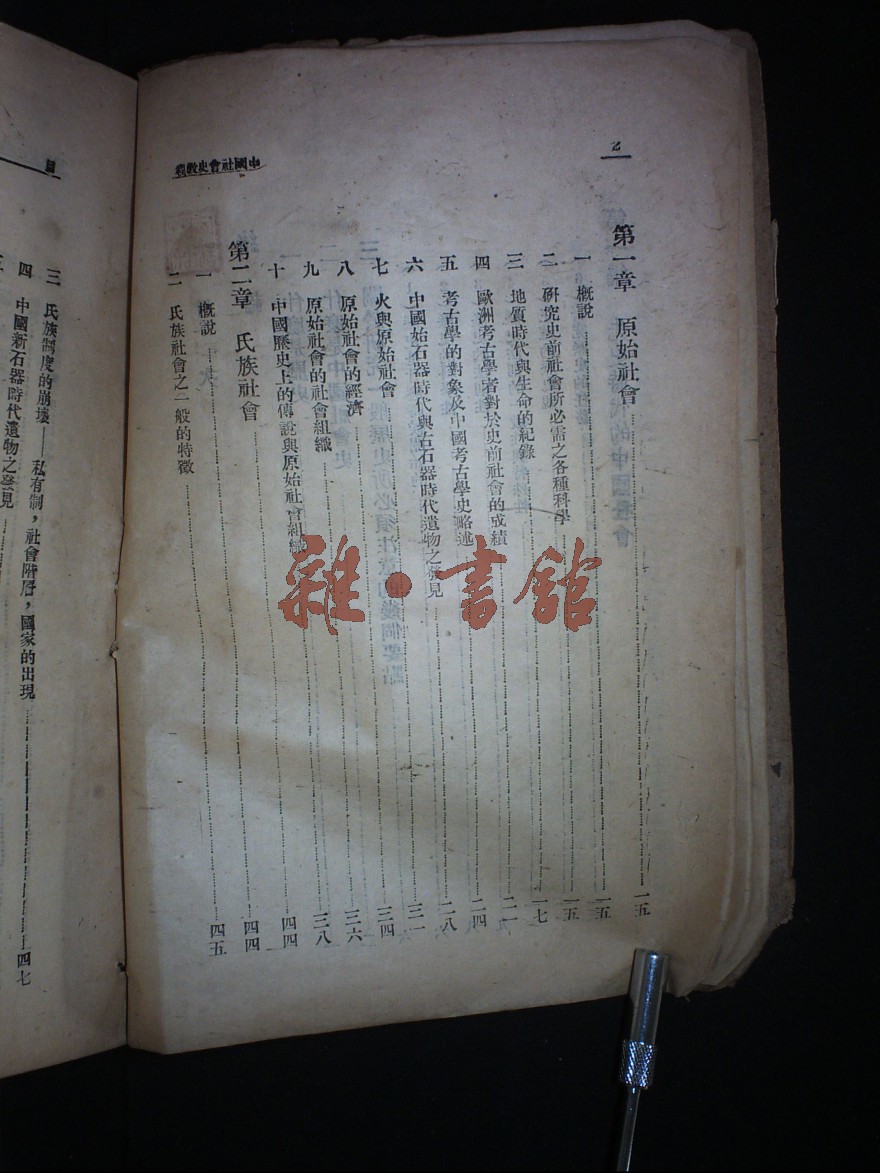 2
中國社會史教程
第一章 原始社會……一五
一 概說……一五
二 研究史前社會所必需之各種科學……一五
三 地質時代與生命的紀錄……一七
四 歐洲考古學者對於史前社會的成績……二一
五 考古學的對象及中國考古學史略述……二四
六 中國始石器時代與古石器時代遺物之發見……二八
七 火與原始社會……三一
八 原始社會的經濟……三四
九 原始社會的社會組織……三六
十 中國歷史上的傳說與原始社會組織……三八
第二章 氏族社會……四四
一 概說……四四
二 氏族社會之一般的特徵……四五
三 氏族制度的崩壞——私有制，社會階層，國家的出現……四七
四 中國新石器時代遺物之發見
雜·書館